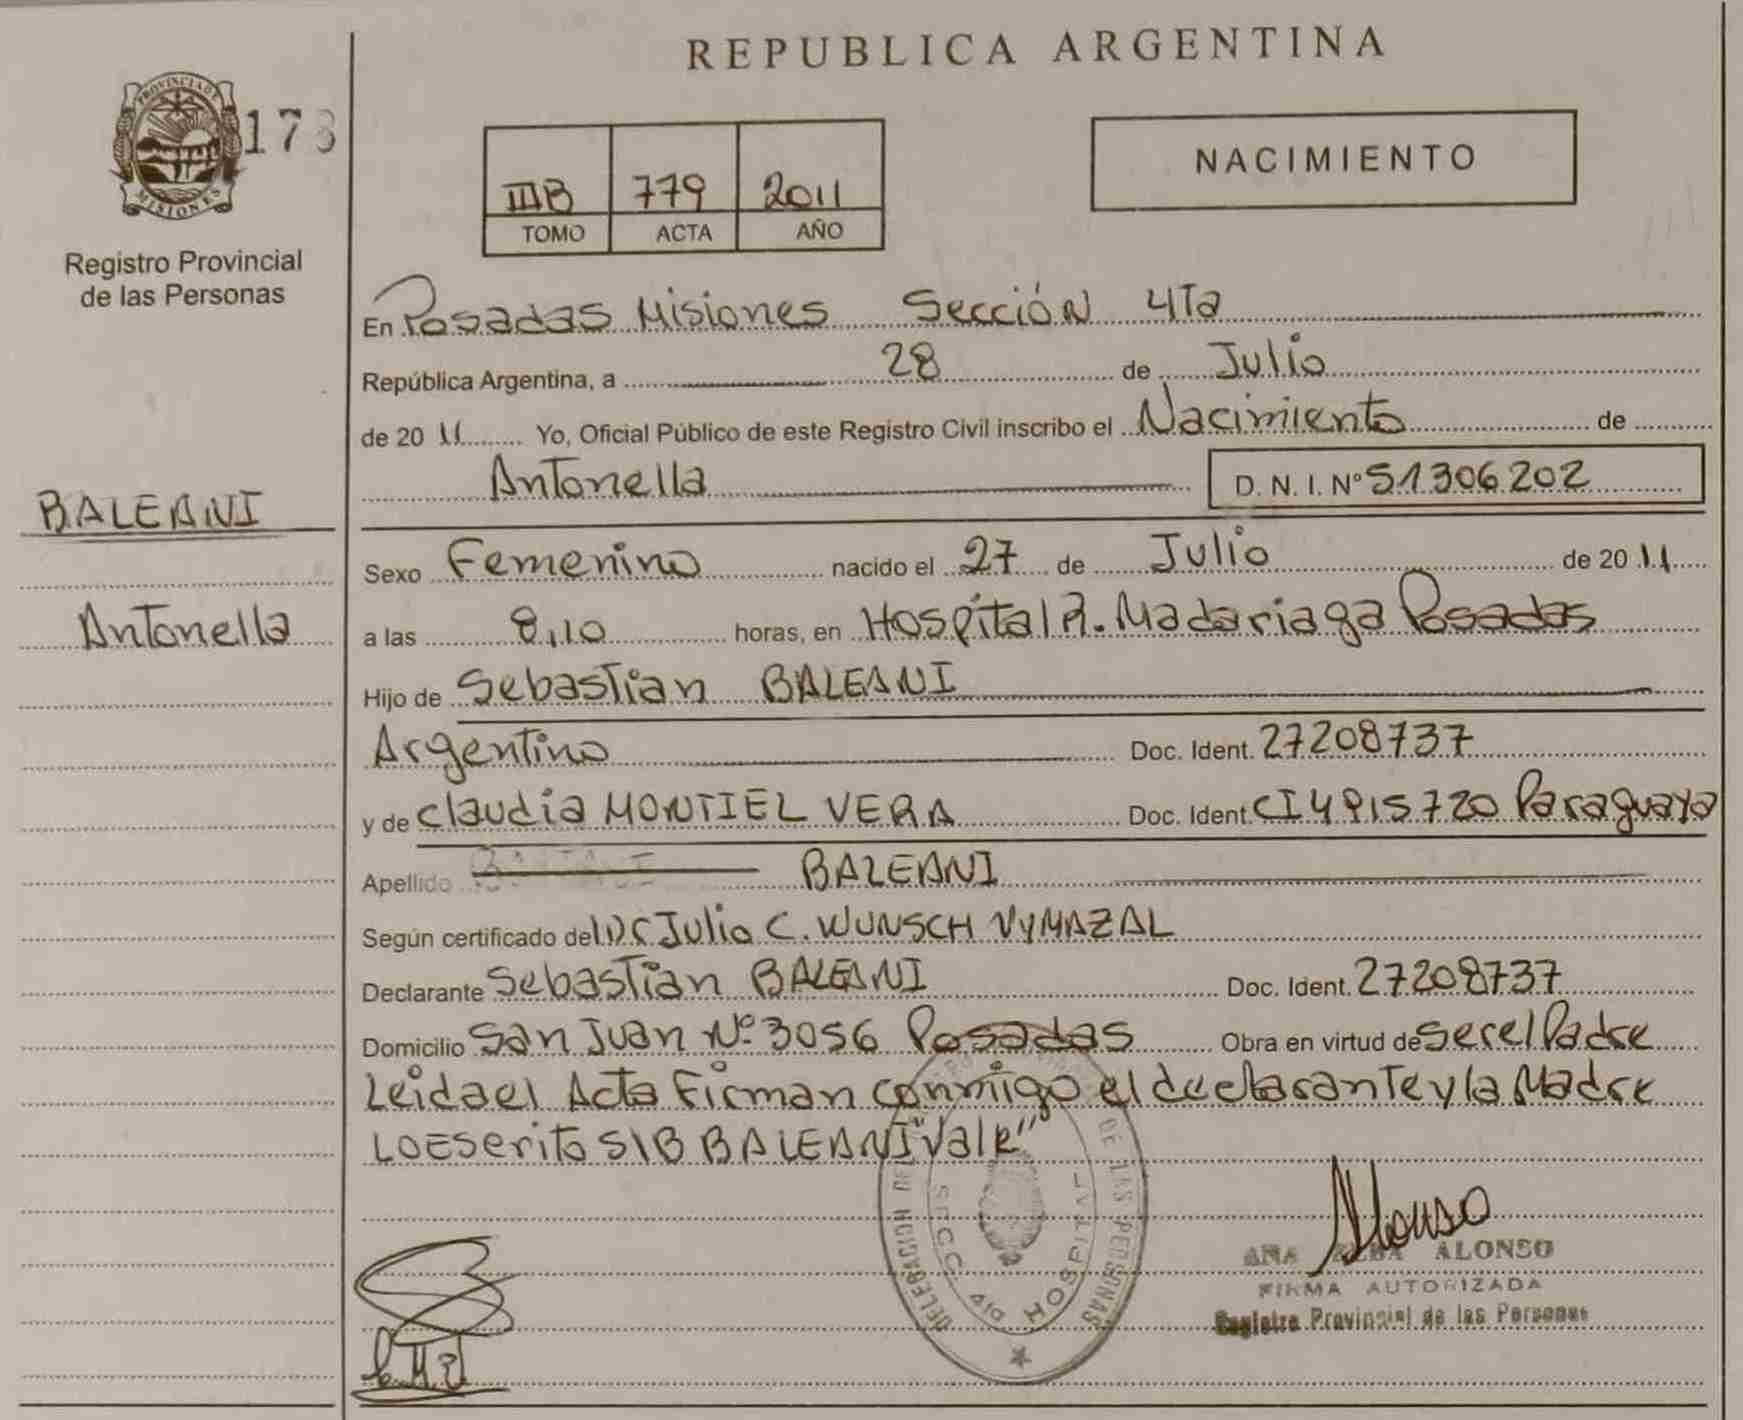 REPUBLICA ARGENTINA
PROVINCIA DE
MISIONES
173
Registro Provincial
de las Personas
NACIMIENTO
IIIB 779 2011
TOMO ACTA AÑO
En Posadas Misiones Sección 4Ta
República Argentina, a 28 de Julio
de 20 11 Yo, Oficial Público de este Registro Civil inscribo el Nacimiento de
Antonella D. N. I. Nº 51306202
BALEANI
Antonella
Sexo Femenino nacido el 27 de Julio de 20 11
a las 8,10 horas, en Hospital R. Madariaga Posadas
Hijo de Sebastian BALEANI
Argentino Doc. Ident. 27208737
y de Claudia MONTIEL VERA Doc. Ident. CI 4915720 Paraguaya
Apellido BALEANI
Según certificado del Dr Julio C. WUNSCH VYMAZAL
Declarante Sebastian BALEANI Doc. Ident. 27208737
Domicilio San Juan Nº 3056 Posadas Obra en virtud de ser el Padre
Leida el Acta Firman conmigo el declarante y la Madre
Lo Escrito S/B BALEANI "Vale"
DELEGACION DE LAS PERSONAS
SECC. 4ta HOSPITAL
Alonso
ANA ALBA ALONSO
FIRMA AUTORIZADA
Registro Provincial de las Personas